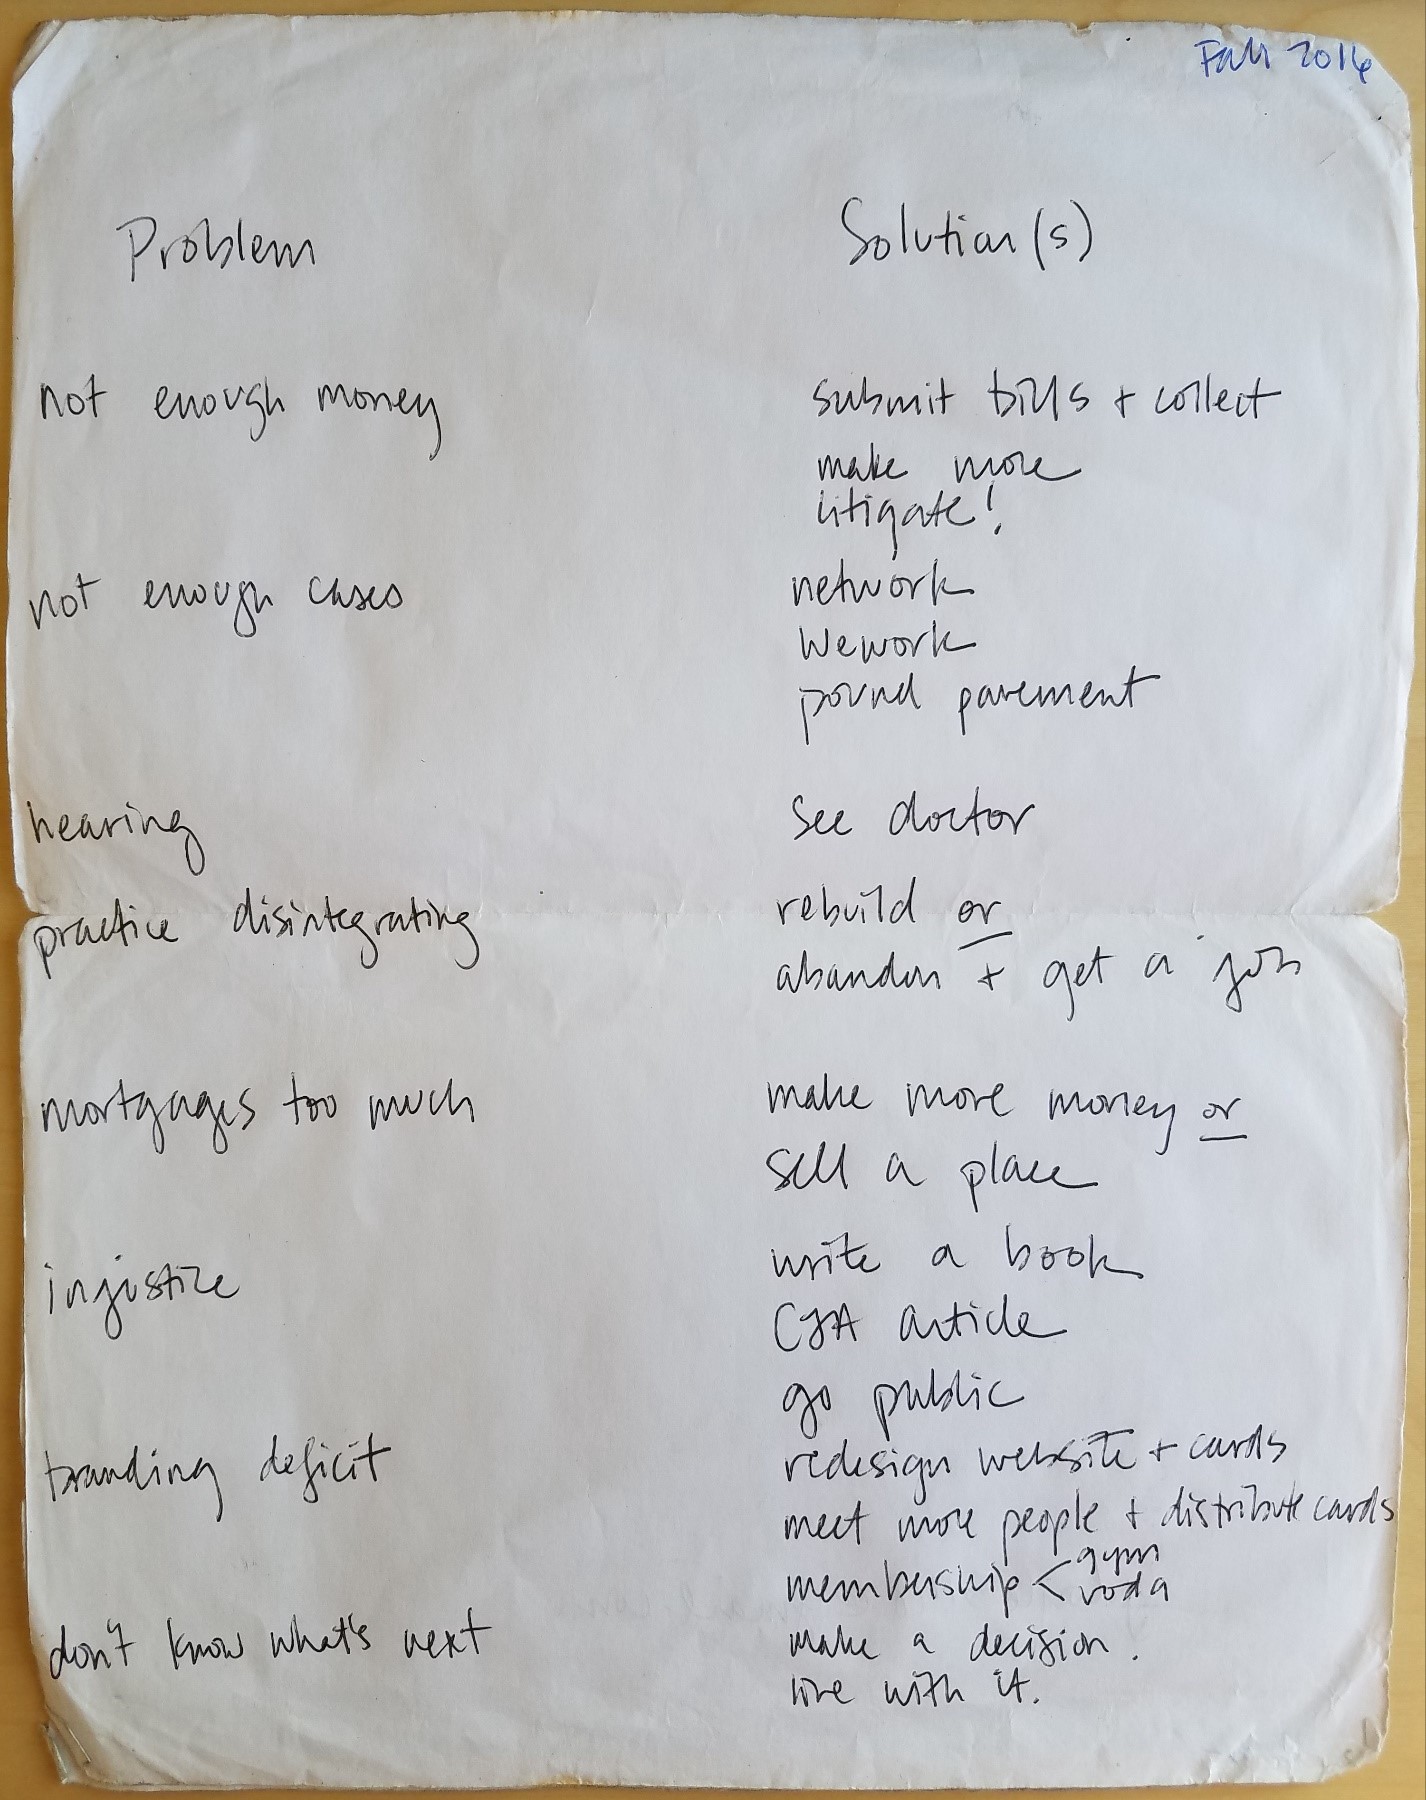 Fall 2016
Problem Solution(s)
not enough money submit bills + collect
make more
litigate!
not enough cases network
Wework
pound pavement
hearing see doctor
practice disintegrating rebuild or
abandon + get a job
mortgages too much make more money or
sell a place
injustice write a book
CJA article
go public
branding deficit redesign website + cards
meet more people + distribute cards
membership < gym
roda
don't know what's next make a decision.
live with it.